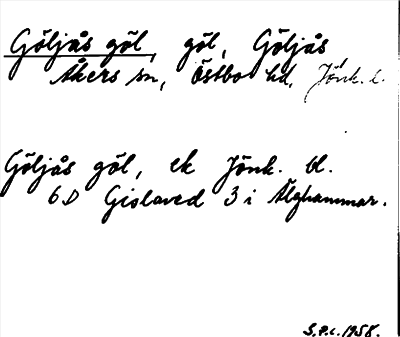 Göljås göl, göl, Göljås
Åkers sn, Östbo hd, Jönk. l.
Göljås göl, ek Jönk. bl.
6D Gislaved 3 i Älghammar.
S.P.L. 1958.